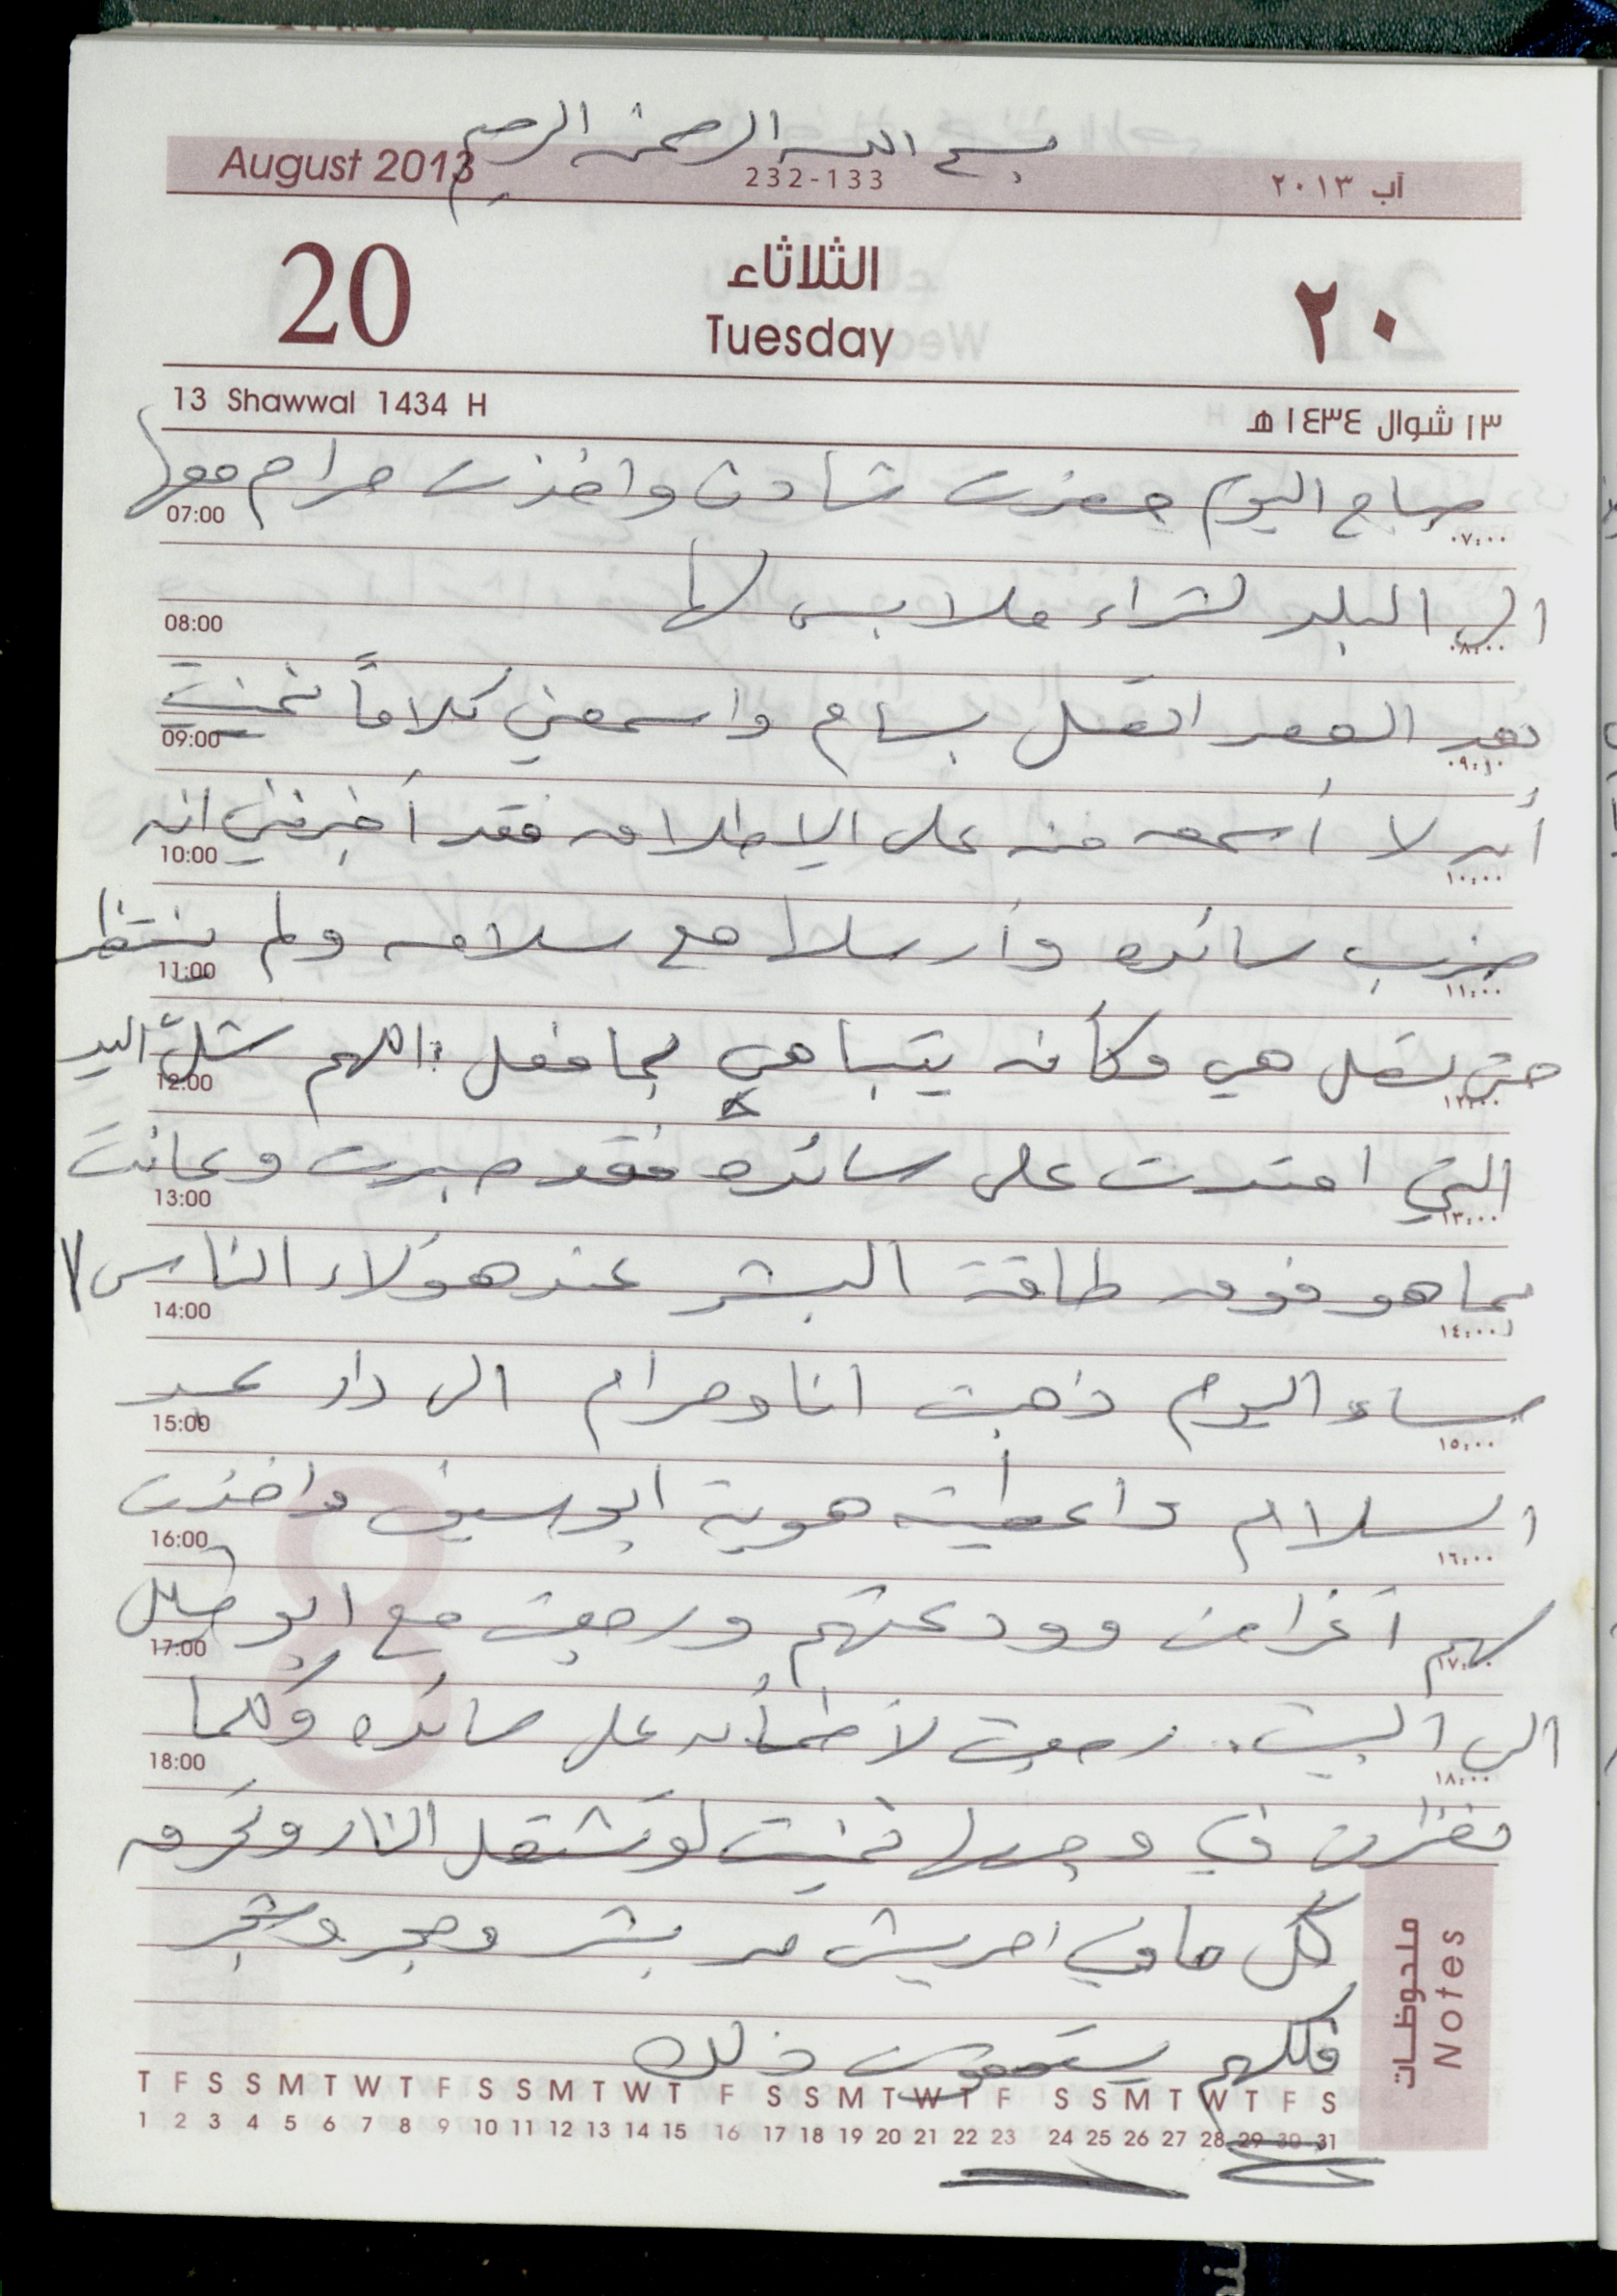 بسم الله الرحمن الرحيم
August 2013 232-133 آب ٢٠١٣
20 الثلاثاء ٢٠
Tuesday
13 Shawwal 1434 H ١٣ شوال ١٤٣٤ هـ
صباح اليوم حضرت شادن واخذت مرام معها
07:00 ٠٧:٠٠
الى البلد لشراء ملابس لها
08:00 ٠٨:٠٠
بعد العصر اتصل بسام واسمعني كلاماً تمنيت
09:00 ٠٩:٠٠
أن لا أسمعه منه على الإطلاق فقد أخبرني انه
10:00 ١٠:٠٠
ضرب سائده وأرسلها مع سلامه ولم ينتظر
11:00 ١١:٠٠
حتى تصل هي وكأنه يتباهى بما فعل اللهم شلّ اليد
12:00 ١٢:٠٠
التي امتدت على سائده فقد صبرت وعانت
13:00 ١٣:٠٠
بما هو فوق طاقة البشر عند هؤلاء الناس
14:00 ١٤:٠٠
مساء اليوم ذهبت انا ومرام الى دار عبد
15:00 ١٥:٠٠
السلام وأعطيته هوية ابو سيف واخذت
16:00 ١٦:٠٠
لهم أغراض وودعتهم ورجعت مع ابو
17:00 ١٧:٠٠
الى البيت. رجعت لأطمأن على سائده وكلما
18:00 ١٨:٠٠
نظرت في وجهها تمنيت لو تشتعل النار وتحرق
كل ما في من بشر وحجر وشجر
فكلهم يستحقون ذلك
ملحوظات
Notes
T F S S M T W T F S S M T W T F S S M T W T F S S M T W T F S
1 2 3 4 5 6 7 8 9 10 11 12 13 14 15 16 17 18 19 20 21 22 23 24 25 26 27 28 29 30 31
8